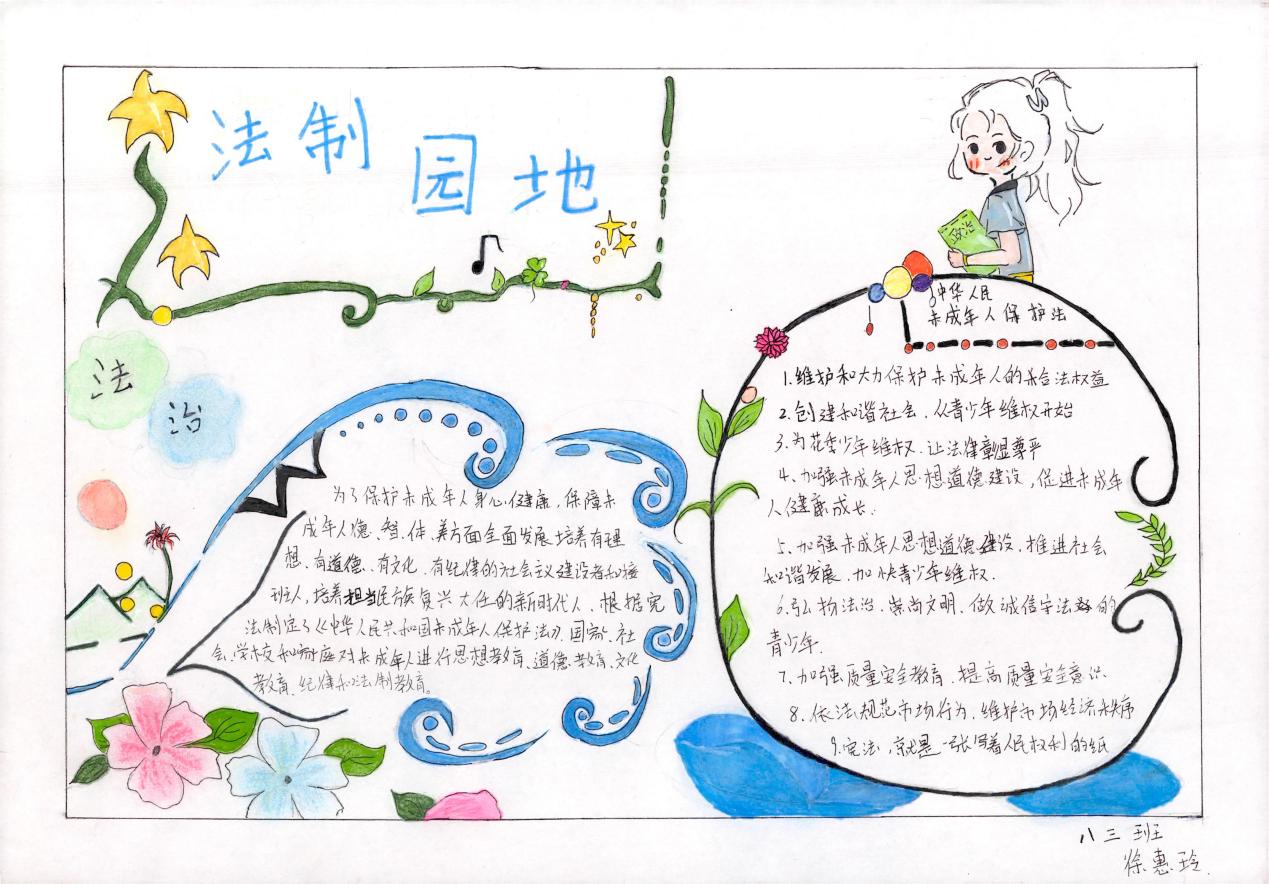 法制园地
政治
法
治
为了保护未成年人身心健康，保障未
成年人德、智、体、美方面全面发展培养有理
想、有道德、有文化、有纪律的社会主义建设者和接
班人，培养担当民族复兴大任的新时代人、根据宪
法制定了《中华人民共和国未成年人保护法》.国家、社
会、学校和家庭对未成年人进行思想教育、道德教育、文化
教育、纪律和法制教育。
中华人民
未成年人保护法
1.维护和大力保护未成年人的合法权益
2.创建和谐社会，从青少年维权开始
3.为花季少年维权.让法律彰显尊严
4、加强未成年人思想道德建设，促进未成年
人健康成长.
5、加强未成年人思想道德建设、推进社会
和谐发展、加快青少年维权.
6.弘扬法治、崇尚文明、做诚信守法的
青少年.
7.加强质量安全教育、提高质量安全意识
8.依法规范市场行为、维护市场经济秩序
9.宪法，就是一张写着人民权利的纸
八三班
徐惠玲.